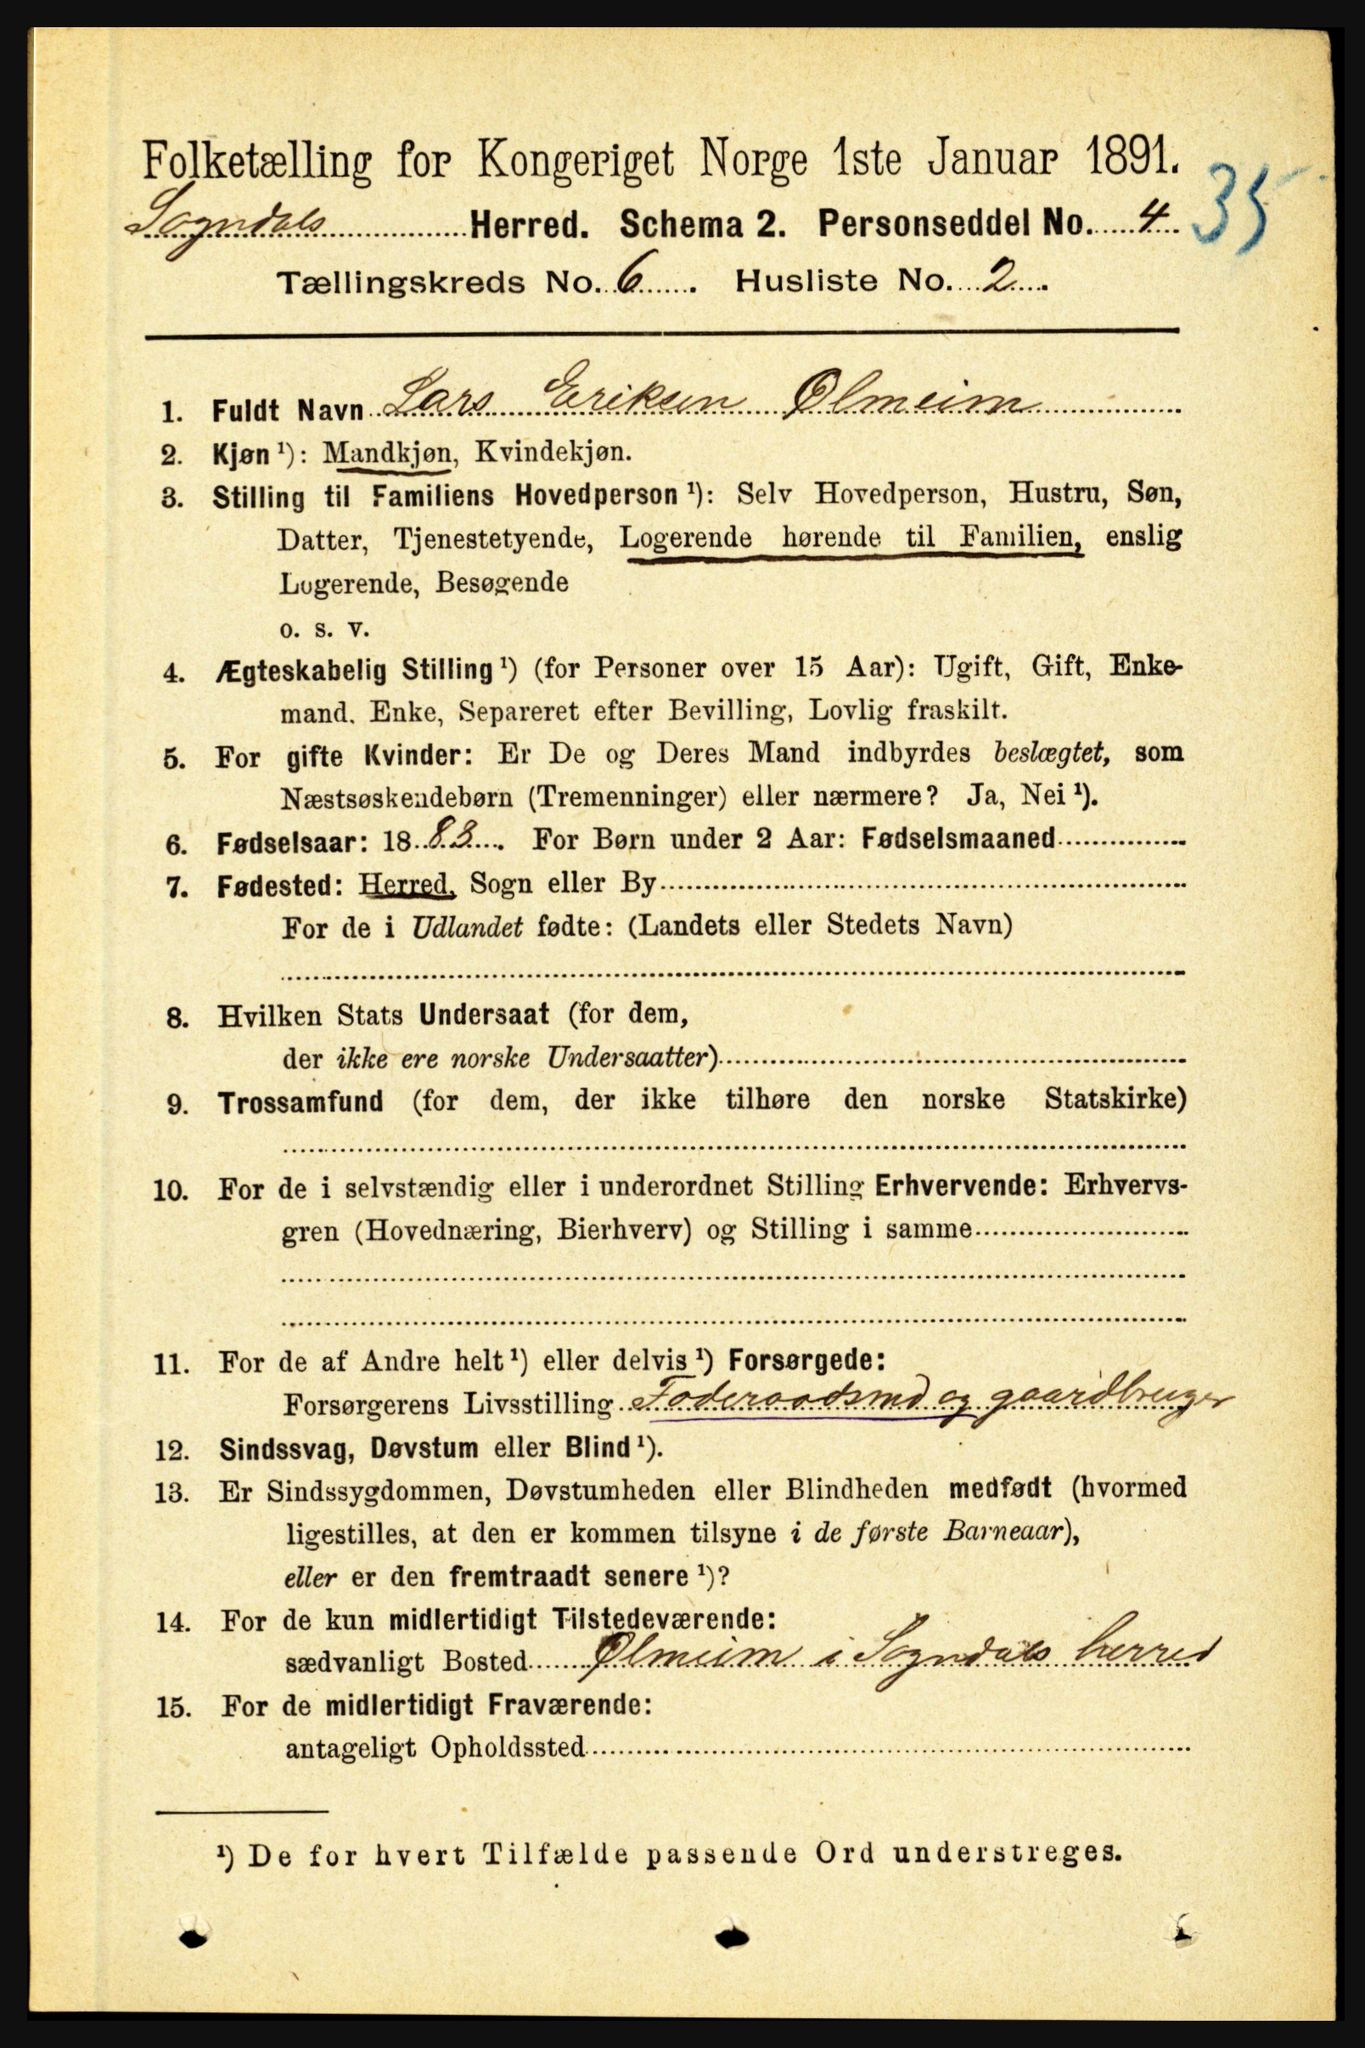 Folketælling for Kongeriget Norge 1ste Januar 1891.
35
Sogndals Herred. Schema 2. Personseddel No. 4
Tællingskreds No. 6. Husliste No. 2.
1. Fuldt Navn Lars Eriksen Ølmeim
2. Kjøn ¹): Mandkjøn, Kvindekjøn.
3. Stilling til Familiens Hovedperson ¹): Selv Hovedperson, Hustru, Søn,
Datter, Tjenestetyende, Logerende hørende til Familien, enslig
Logerende, Besøgende
o. s. v.
4. Ægteskabelig Stilling ¹) (for Personer over 15 Aar): Ugift, Gift, Enke-
mand, Enke, Separeret efter Bevilling, Lovlig fraskilt.
5. For gifte Kvinder: Er De og Deres Mand indbyrdes beslægtet, som
Næstsøskendebørn (Tremenninger) eller nærmere? Ja, Nei ¹).
6. Fødselsaar: 1883. For Børn under 2 Aar: Fødselsmaaned
7. Fødested: Herred, Sogn eller By
For de i Udlandet fødte: (Landets eller Stedets Navn)
8. Hvilken Stats Undersaat (for dem,
der ikke ere norske Undersaatter)
9. Trossamfund (for dem, der ikke tilhøre den norske Statskirke)
10. For de i selvstændig eller i underordnet Stilling Erhvervende: Erhvervs-
gren (Hovednæring, Bierhverv) og Stilling i samme
11. For de af Andre helt ¹) eller delvis ¹) Forsørgede:
Forsørgerens Livsstilling Føderaadsmd og gaardbruger
12. Sindssvag, Døvstum eller Blind ¹).
13. Er Sindssygdommen, Døvstumheden eller Blindheden medfødt (hvormed
ligestilles, at den er kommen tilsyne i de første Barneaar),
eller er den fremtraadt senere ¹)?
14. For de kun midlertidigt Tilstedeværende:
sædvanligt Bosted Ølmeim i Sogndals herred
15. For de midlertidigt Fraværende:
antageligt Opholdssted
¹) De for hvert Tilfælde passende Ord understreges.